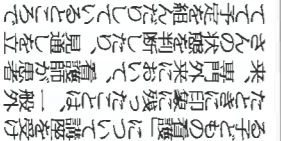 る子どもの看護」について講義を受け
たときに印象に残ったことは、一般外
来、専門外来において、看護師が患者
さんの状態を判断したり、見通しを立
てて予定を組んだりしているところで